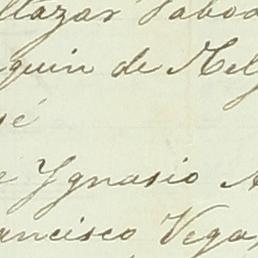 ltazar Taboa
quin de Mel
sé
e Ygnasio A
ancisco Vega